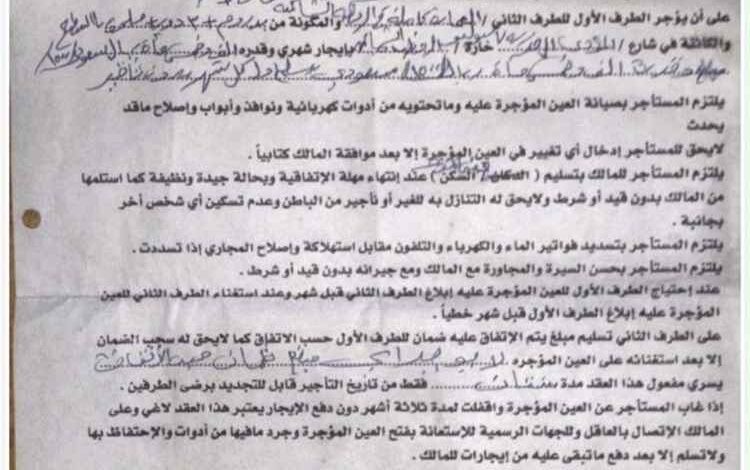 على أن يؤجر الطرف الأول للطرف الثاني / كاملة والمكونة من
والكائنة في شارع / حارة / الإيجار شهري وقدره
سعودي كل شهر بدون تأخير
يلتزم المستأجر بصيانة العين المؤجرة عليه وماتحتويه من أدوات كهربائية ونوافذ وأبواب وإصلاح ماقد
يحدث
لايحق للمستأجر إدخال أي تغيير في العين المؤجرة إلا بعد موافقة المالك كتابياً .
يلتزم المستأجر للمالك بتسليم ( الدكان / السكن ) عند إنتهاء مهلة الإتفاقية وبحالة جيدة ونظيفة كما استلمها
من المالك بدون قيد أو شرط ولايحق له التنازل به للغير أو تأجير من الباطن وعدم تسكين أي شخص أخر
بجانبة .
يلتزم المستأجر بتسديد فواتير الماء والكهرباء والتلفون مقابل استهلاكة وإصلاح المجاري إذا تسددت .
يلتزم المستأجر بحسن السيرة والمجاورة مع المالك ومع جيرانه بدون قيد أو شرط .
عند إحتياج الطرف الأول للعين المؤجرة عليه إبلاغ الطرف الثاني قبل شهر وعند استغناء الطرف الثاني للعين
المؤجرة عليه إبلاغ الطرف الأول قبل شهر خطياً .
على الطرف الثاني تسليم مبلغ يتم الإتفاق عليه ضمان للطرف الأول حسب الاتفاق كما لايحق له سحب الضمان
إلا بعد استغنائه على العين المؤجره لا يوجد مبلغ ضمان حسب الاتفاق
يسري مفعول هذا العقد مدة سنتان فقط من تاريخ التأجير قابل للتجديد برضى الطرفين .
إذا غاب المستأجر عن العين المؤجرة واقفلت لمدة ثلاثة أشهر دون دفع الإيجار يعتبر هذا العقد لاغي وعلى
المالك الإتصال بالعاقل وللجهات الرسمية للإستعانة بفتح العين المؤجرة وجرد مافيها من أدوات والإحتفاظ بها
ولاتسلم إلا بعد دفع ماتبقى عليه من إيجارات للمالك .